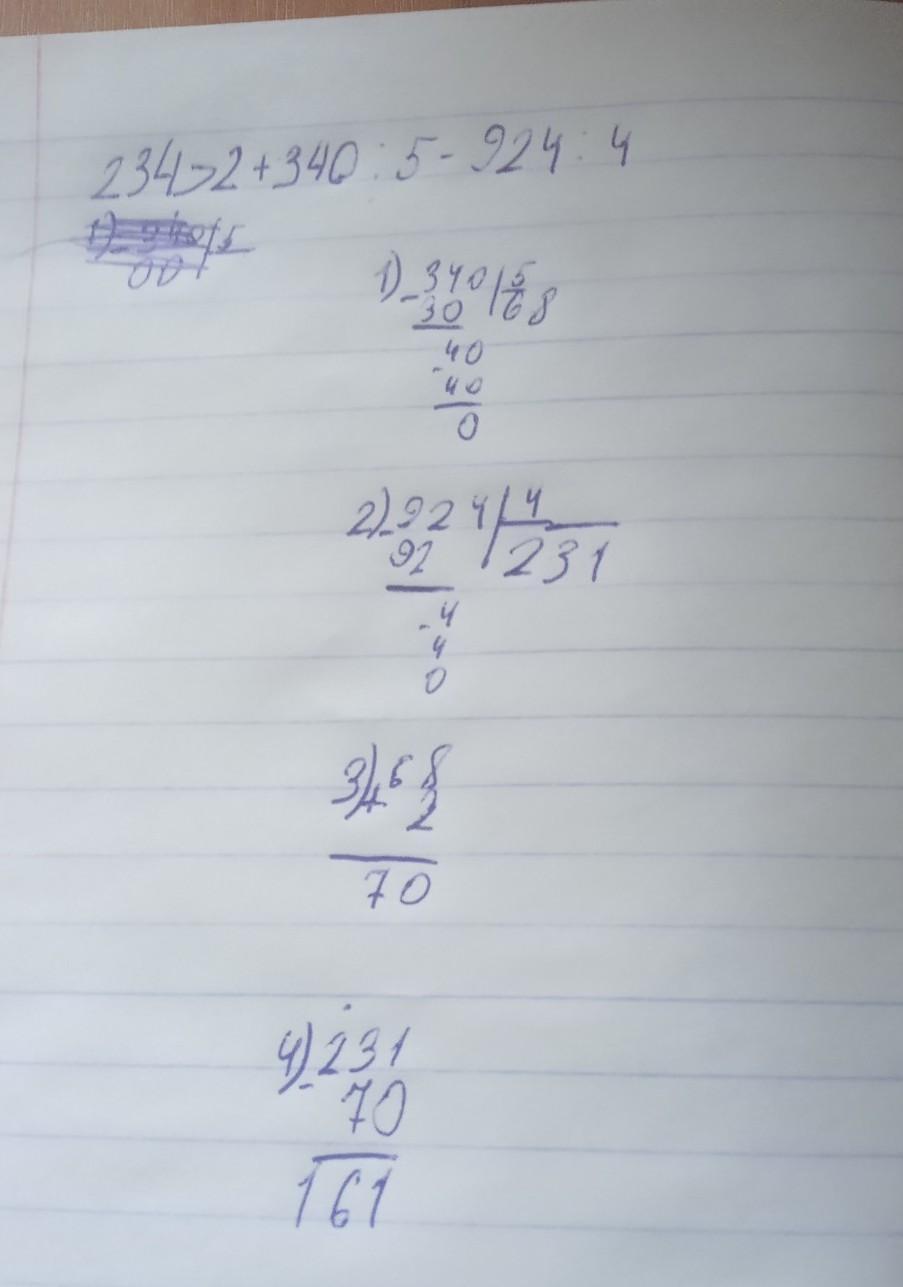 234>2+340:5-924:4
1) -340 5
00
1) -340 5
30 68
-40
40
0
2) -924 4
92 231
-4
4
0
3) +68
2
70
4) -231
70
161